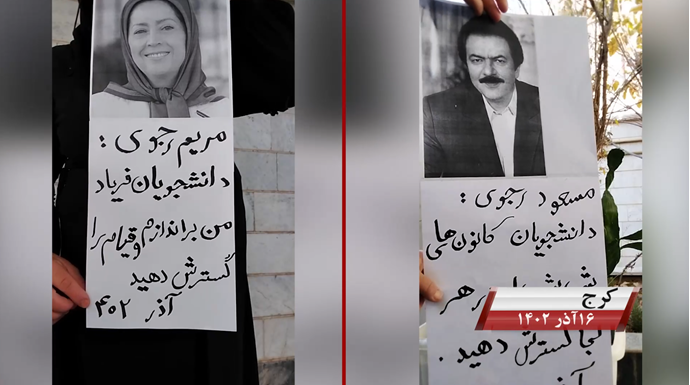 مریم رجوی :
دانشجویان فریاد
من براندازم و قیام را
گسترش دهید
آذر ۴۰۲
مسعود رجوی :
دانشجویان کانون های
هر
کجا گسترش دهید .
کرج
۱۶آذر ۱۴۰۲